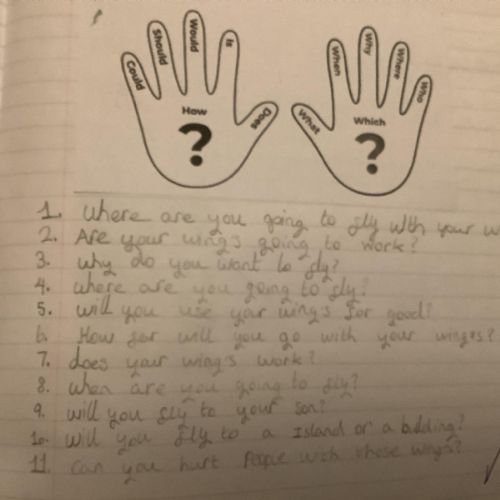 Could Should Would Is Does
How
?
What When Why Where Who
Which
?
1. where are you going to fly with your
2. Are your wing's going to work?
3. why do you want to fly?
4. where are you going to fly?
5. will you use your wing's for good?
6. How far will you go with your wing's?
7. does your wing's work?
8. when are you going to fly?
9. will you fly to your son?
10. will you fly to a Island or a building?
11. can you hurt people with those wings?